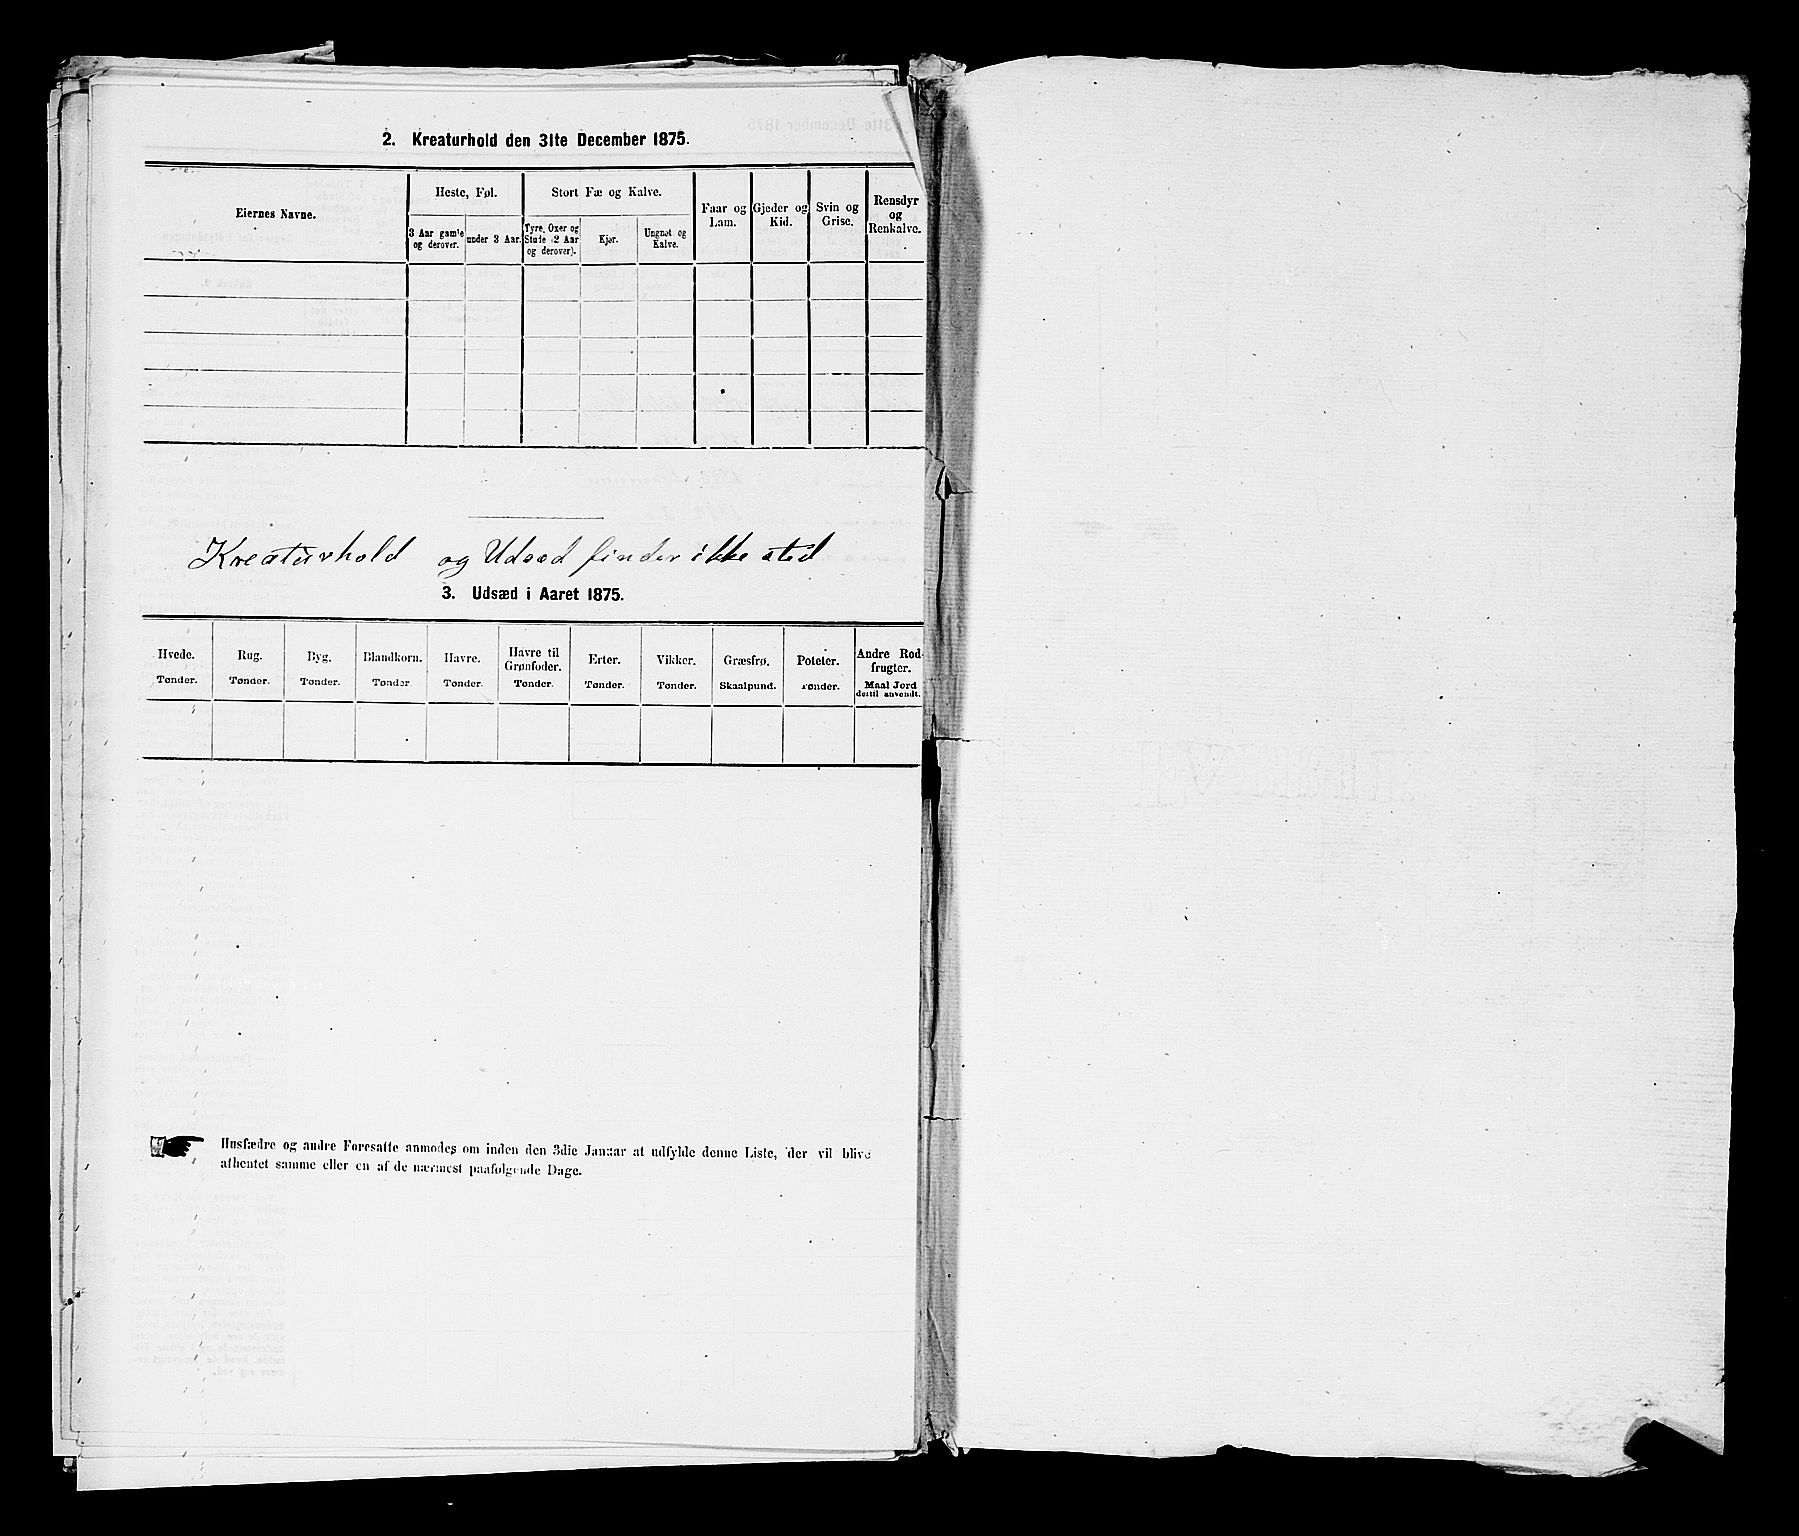 2. Kreaturhold den 31te December 1875.
Eiernes Navne.
Heste, Føl.
Stort Fæ og Kalve.
Faar og
Lam.
Gjeder og
Kid.
Svin og
Grise.
Rensdyr
og
Renkalve.
3 Aar gamle
og derover.
under 3 Aar.
Tyre, Oxer og
Stude (2 Aar
og derover).
Kjør.
Ungnøt og
Kalve.
Kreaturhold og Udsæd finder ikke sted
3. Udsæd i Aaret 1875.
Hvede.
Tønder.
Rug.
Tønder.
Byg.
Tønder.
Blandkorn.
Tønder
Havre.
Tønder.
Havre til
Grønfoder.
Tønder.
Erter.
Tønder.
Vikker.
Tønder.
Græsfrø.
Skaalpund.
Poteter.
Tønder.
Andre Rod-
frugter.
Maal Jord
dertil anvendt.
Husfædre og andre Foresatte anmodes om inden den 3die Januar at udfylde denne Liste, der vil blive
afhentet samme eller en af de nærmest paafølgende Dage.